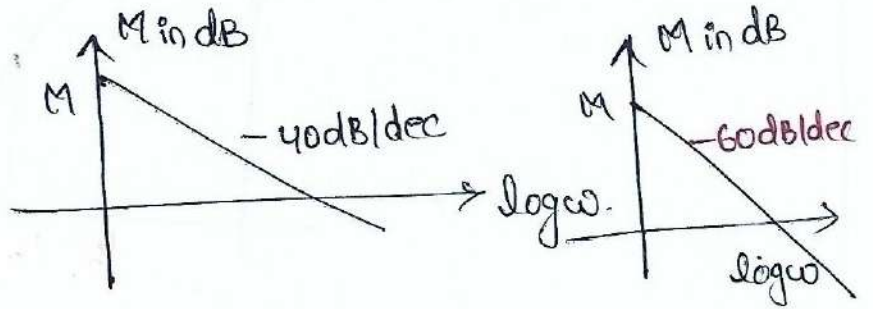 M in dB
M
-40dB/dec
logω.
M in dB
M
-60dB/dec
logω